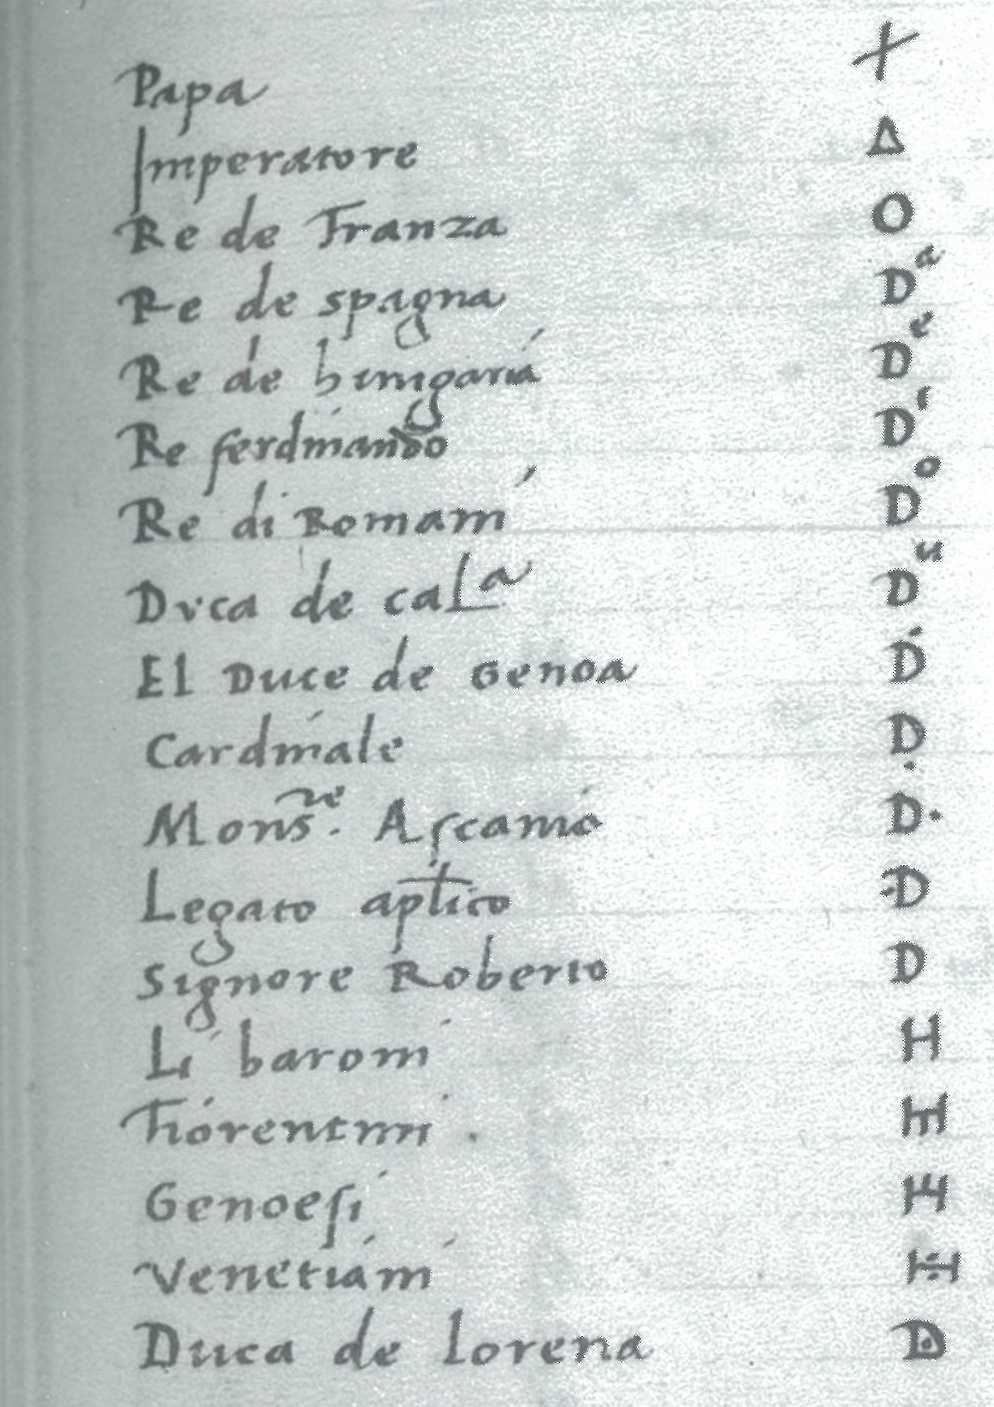 Papa +
Imperatore Δ
Re de Franza O
Re de spagna Dᵃ
Re de hungaria Dᵉ
Re ferdinando Dⁱ
Re di Romani Dᵒ
Dvca de calᵃ Dᵘ
El Duce de Genoa Ḋ
Cardinale Ḍ
Monsʳᵉ. Ascanio D·
Legato aplico :D
Signore Roberto D
Li baroni H
Fiorentini .
Genoesi
Venetiani
Duca de lorena D